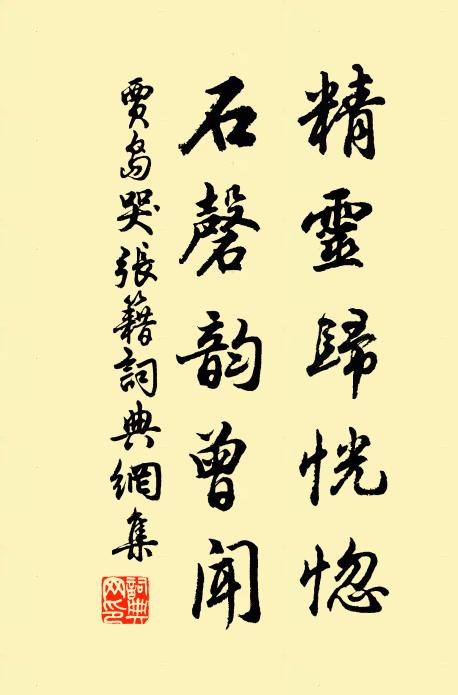 精靈歸恍惚
石磬韵曾闻
賈島哭張籍詞典網集
詞典
网印